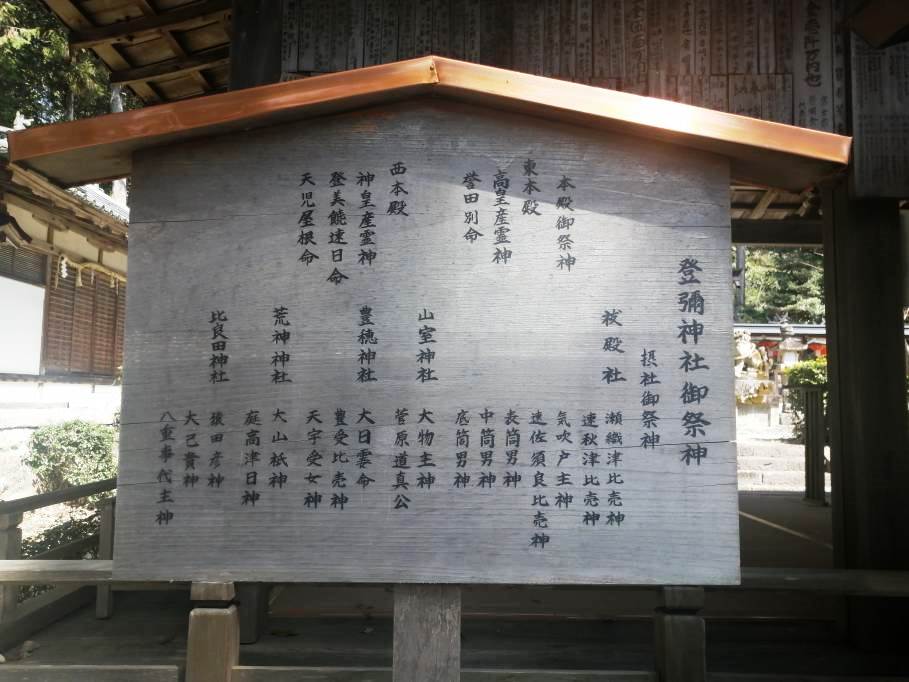 登彌神社御祭神
本殿御祭神
東本殿
高皇産霊神
誉田別命
西本殿
神皇産霊神
登美饒速日命
天児屋根命
摂社御祭神
祓殿社
瀬織津比売神
速秋津比売神
気吹戸主神
速佐須良比売神
表筒男神
中筒男神
底筒男神
山室神社
大物主神
菅原道真公
豊穂神社
大日孁命
豊受比売神
天宇受女神
荒神神社
大山祇神
庭高津日神
比良田神社
猿田彦神
大己貴神
八重事代主神